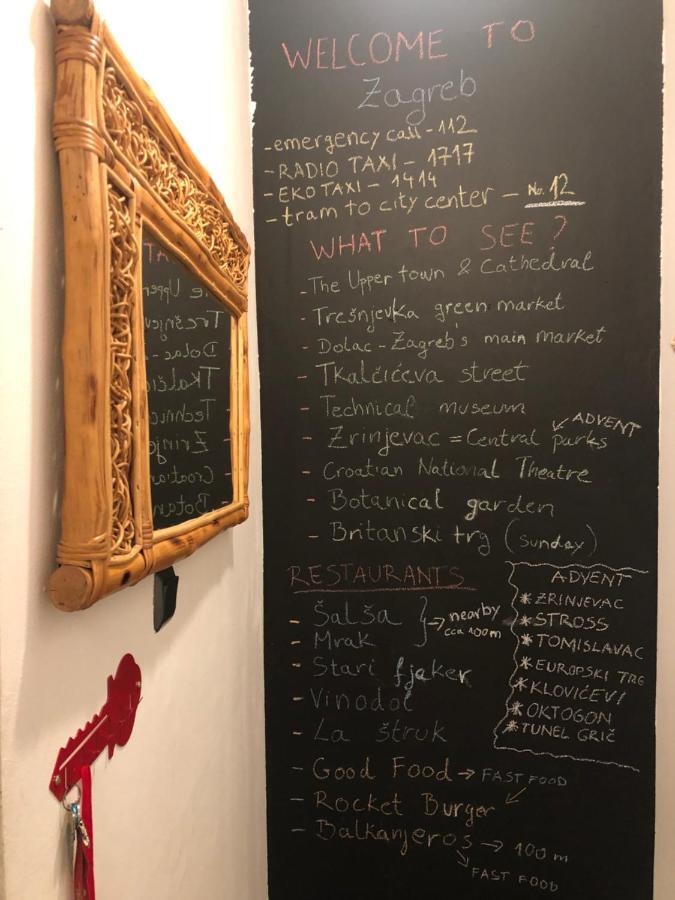 WELCOME TO
Zagreb
- emergency call - 112
- RADIO TAXI - 1717
- EKO TAXI - 1414
- tram to city center - No. 12
WHAT TO SEE?
- The Upper town & Cathedral
- Trešnjevka green market
- Dolac - Zagreb's main market
- Tkalčićeva street
- Technical museum
- Zrinjevac = Central parks ← ADVENT
- Croatian National Theatre
- Botanical garden
- Britanski trg (sunday)
RESTAURANTS
- Šalša
- Mrak
} → nearby
cca 100m
- Stari fjaker
- Vinodol
- La štruk
- Good Food → FAST FOOD
- Rocket Burger
- Balkanjeros → 100 m
FAST FOOD
ADVENT
* ZRINJEVAC
* STROSS
* TOMISLAVAC
* EUROPSKI TRG
* KLOVIĆEVI
* OKTOGON
* TUNEL GRIČ